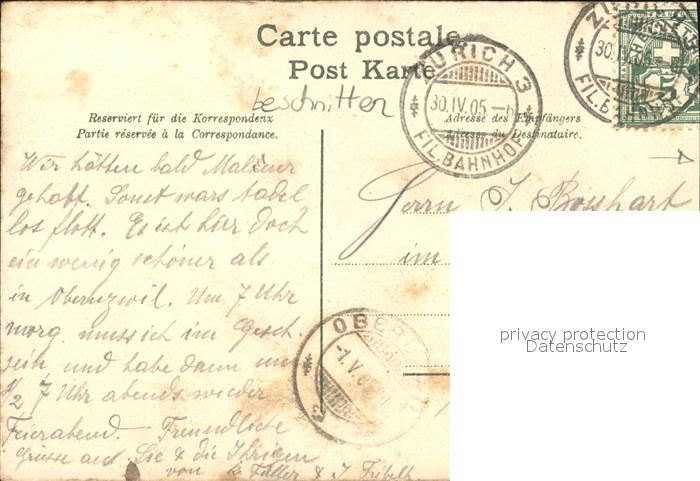 Carte postale
Post Karte
beschnitten
ZÜRICH 3
30.IV.05
FIL.BAHNHOF
30.IV.05
Reserviert für die Korrespondenz
Partie réservée à la Correspondance.
Adresse des Empfängers
Adresse du Destinataire.
Wir hätten bald Maleur
gehabt. Sonst wars tadel
los flott. Es ist hier doch
ein wenig schöner als
in Oberuzwil. Um 7 Uhr
morg. muss ich im Gesch.
sein und habe dann um
1/2 7 Uhr abends wieder
Feierabend. Freundliche
Grüsse an Sie & die Ihrigen
von & J.
Herrn J. Bosshart
im
OBER
1.V.05
privacy protection
Datenschutz